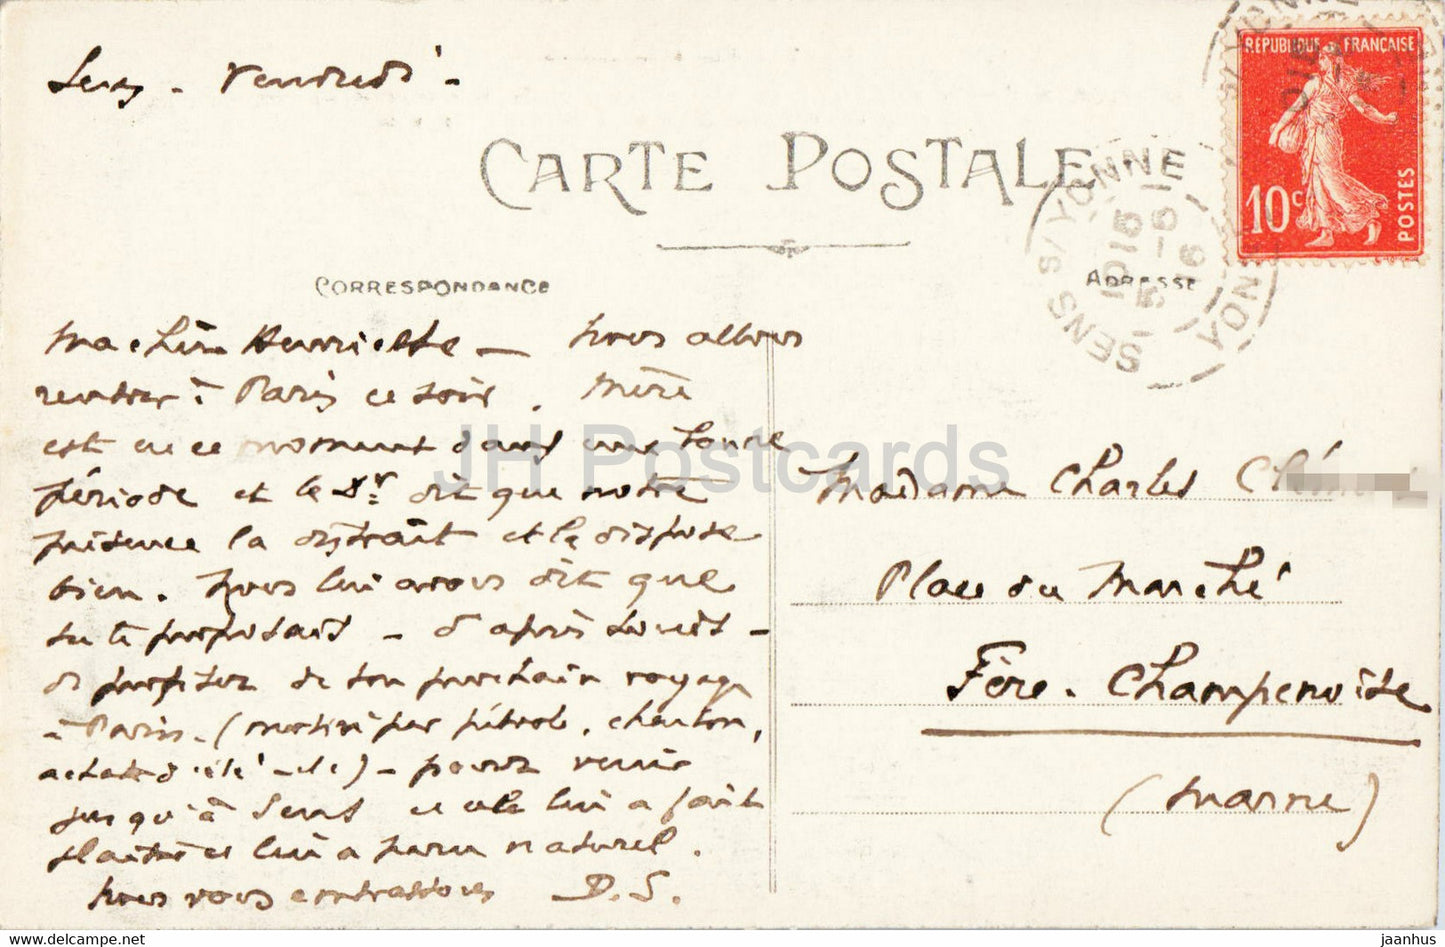 Sens - Vendredi -
REPUBLIQUE FRANÇAISE
10c POSTES
CARTE POSTALE
SENS S/ YONNE
YONNE
CORRESPONDANCE
ADRESSE
Ma chère Henriette - Nous allons
rentrer à Paris ce soir. Mère
est en ce moment dans une bonne
période et le Dr dit que notre
présence la distrait et la dispose
bien. Nous lui avons dit que
tu te proposais - d'après Louis -
de profiter de ton prochain voyage
à Paris - (motivé par pétrole, charbon,
achats d'été - etc) - pour venir
jusqu'à Sens et cela lui a fait
plaisir et lui a paru naturel.
Nous vous embrassons D. S.
Madame Charles
Place du Marché
Fère-Champenoise
(Marne)
JH Postcards
www.jhpostcards.com/en-no/collections/new-products
jaanhus